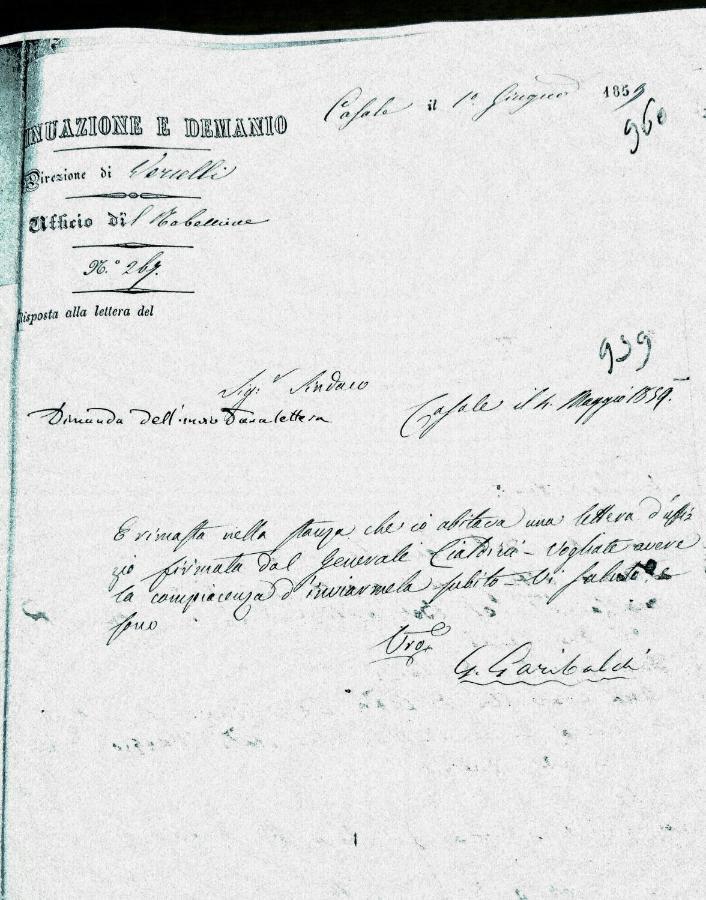 Casale il 1º Giugno 1859
960
INUAZIONE E DEMANIO
Direzione di Vercelli
Ufficio di
N.º 267.
Risposta alla lettera del
939
Sig.r Sindaco
Dimanda dell'invio d'una lettera
Casale il 4. Maggio 1859.
E rimasta nella stanza che io abitava una lettera d'uffi=
zio firmata dal Generale Cialdini - Vogliate avere
la compiacenza d'inviarmela subito - Vi saluto e
sono
Vro
G. Garibaldi